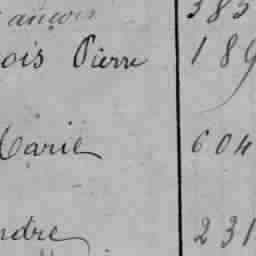 ançois 385
ois Pierre 189
Marie 604
ndre 231